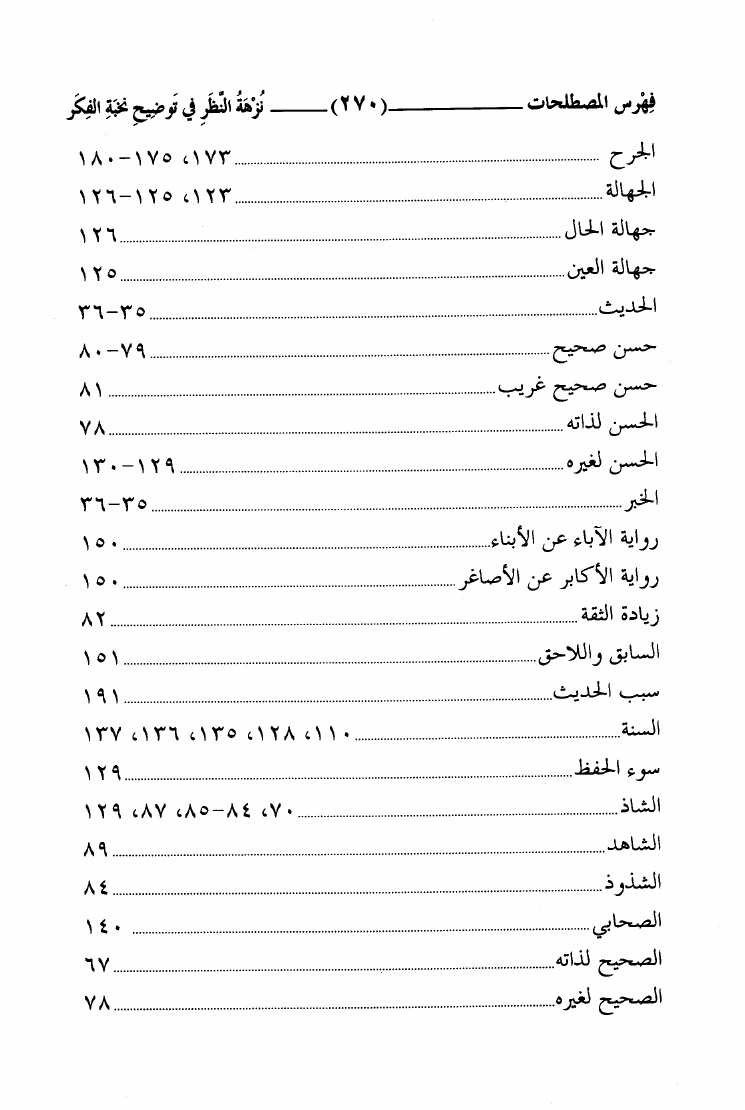 فِهْرس المصطلحات ــــــــــــ (٢٧٠) ــــــــ نُزْهَةُ النَّظَرِ في تَوضِيحِ نخبَةِ الفِكَر
الجرح ........ ١٧٣، ١٧٥-١٨٠
الجهالة ........ ١٢٣، ١٢٥-١٢٦
جهالة الحال ........ ١٢٦
جهالة العين ........ ١٢٥
الحديث ........ ٣٥-٣٦
حسن صحيح ........ ٧٩-٨٠
حسن صحيح غريب ........ ٨١
الحسن لذاته ........ ٧٨
الحسن لغيره ........ ١٢٩-١٣٠
الخبر ........ ٣٥-٣٦
رواية الآباء عن الأبناء ........ ١٥٠
رواية الأكابر عن الأصاغر ........ ١٥٠
زيادة الثقة ........ ٨٢
السابق واللاحق ........ ١٥١
سبب الحديث ........ ١٩١
السنة ........ ١١٠، ١٢٨، ١٣٥، ١٣٦، ١٣٧
سوء الحفظ ........ ١٢٩
الشاذ ........ ٧٠، ٨٤-٨٥، ٨٧، ١٢٩
الشاهد ........ ٨٩
الشذوذ ........ ٨٤
الصحابي ........ ١٤٠
الصحيح لذاته ........ ٦٧
الصحيح لغيره ........ ٧٨